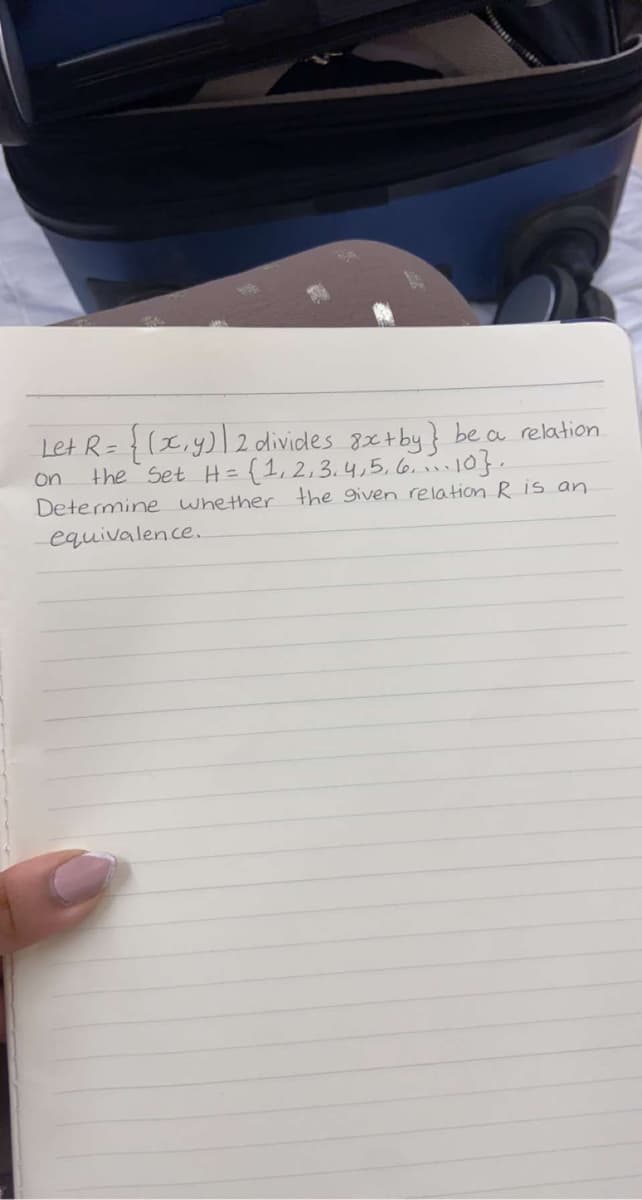 Let R = {(x,y) | 2 divides 8x+by} be a relation
on the Set H = {1, 2, 3, 4, 5, 6, .... 10}.
Determine whether the given relation R is an
equivalence.